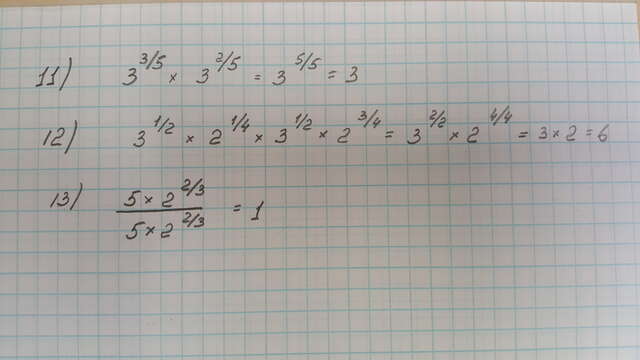 11) 3^{3/5} × 3^{2/5} = 3^{5/5} = 3
12) 3^{1/2} × 2^{1/4} × 3^{1/2} × 2^{3/4} = 3^{2/2} × 2^{4/4} = 3 × 2 = 6
13) \frac{5 × 2^{2/3}}{5 × 2^{2/3}} = 1